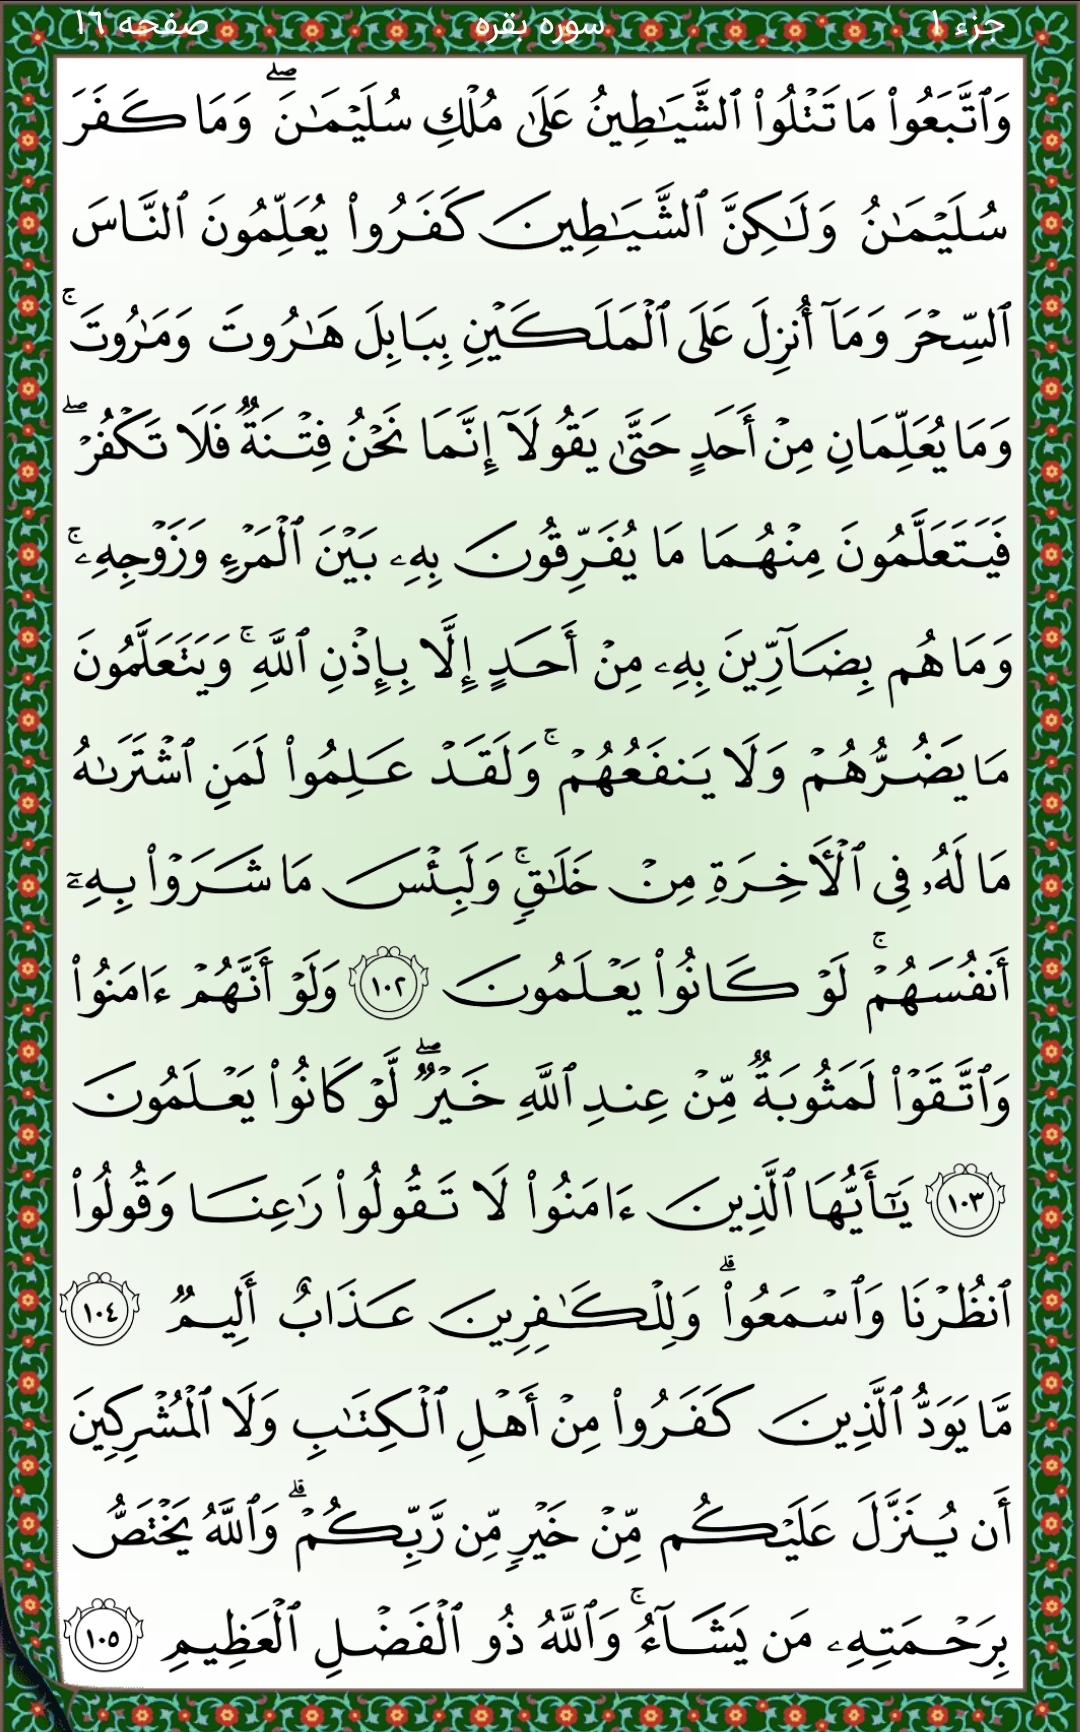 جزء ١ سوره بقره صفحه ١٦
وَٱتَّبَعُوا۟ مَا تَتْلُوا۟ ٱلشَّيَـٰطِينُ عَلَىٰ مُلْكِ سُلَيْمَـٰنَ ۖ وَمَا كَفَرَ
سُلَيْمَـٰنُ وَلَـٰكِنَّ ٱلشَّيَـٰطِينَ كَفَرُوا۟ يُعَلِّمُونَ ٱلنَّاسَ
ٱلسِّحْرَ وَمَآ أُنزِلَ عَلَى ٱلْمَلَكَيْنِ بِبَابِلَ هَـٰرُوتَ وَمَـٰرُوتَ ۚ
وَمَا يُعَلِّمَانِ مِنْ أَحَدٍ حَتَّىٰ يَقُولَآ إِنَّمَا نَحْنُ فِتْنَةٌ فَلَا تَكْفُرْ ۖ
فَيَتَعَلَّمُونَ مِنْهُمَا مَا يُفَرِّقُونَ بِهِۦ بَيْنَ ٱلْمَرْءِ وَزَوْجِهِۦ ۚ
وَمَا هُم بِضَآرِّينَ بِهِۦ مِنْ أَحَدٍ إِلَّا بِإِذْنِ ٱللَّهِ ۚ وَيَتَعَلَّمُونَ
مَا يَضُرُّهُمْ وَلَا يَنفَعُهُمْ ۚ وَلَقَدْ عَلِمُوا۟ لَمَنِ ٱشْتَرَىٰهُ
مَا لَهُۥ فِى ٱلْـَٔاخِرَةِ مِنْ خَلَـٰقٍ ۚ وَلَبِئْسَ مَا شَرَوْا۟ بِهِۦٓ
أَنفُسَهُمْ ۚ لَوْ كَانُوا۟ يَعْلَمُونَ ١٠٢ وَلَوْ أَنَّهُمْ ءَامَنُوا۟
وَٱتَّقَوْا۟ لَمَثُوبَةٌ مِّنْ عِندِ ٱللَّهِ خَيْرٌ ۖ لَّوْ كَانُوا۟ يَعْلَمُونَ
١٠٣ يَـٰٓأَيُّهَا ٱلَّذِينَ ءَامَنُوا۟ لَا تَقُولُوا۟ رَٰعِنَا وَقُولُوا۟
ٱنظُرْنَا وَٱسْمَعُوا۟ ۗ وَلِلْكَـٰفِرِينَ عَذَابٌ أَلِيمٌ ١٠٤
مَّا يَوَدُّ ٱلَّذِينَ كَفَرُوا۟ مِنْ أَهْلِ ٱلْكِتَـٰبِ وَلَا ٱلْمُشْرِكِينَ
أَن يُنَزَّلَ عَلَيْكُم مِّنْ خَيْرٍ مِّن رَّبِّكُمْ ۗ وَٱللَّهُ يَخْتَصُّ
بِرَحْمَتِهِۦ مَن يَشَآءُ ۚ وَٱللَّهُ ذُو ٱلْفَضْلِ ٱلْعَظِيمِ ١٠٥